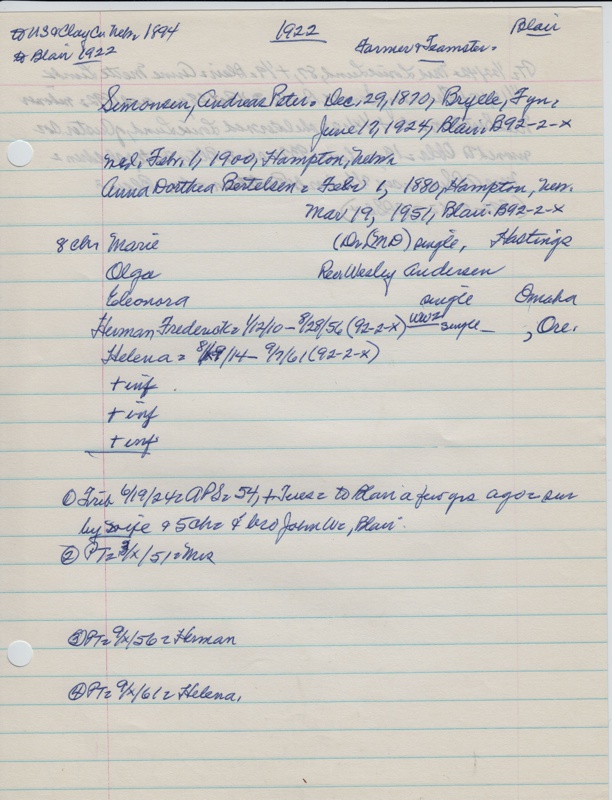 to US & Clay Co Nebr 1894
to Blair 1922
1922
Blair
Farmer & Teamster =
Simonsen, Andreas Peter = Dec, 29, 1870, Brylle, Fyn,
June 17, 1924, Blair. B92-2-X
md, Febr. 1, 1900, Hampton, Nebr.
Anna Dorthea Bertelsen = Febr 1, 1880, Hampton, Neb.
Mar 19, 1951, Blair. B92-2-X
8 chn Marie (Dr (MD) single, Hastings
Olga Rev Wesley Andersen
Eleonora single Omaha
Herman Frederick = 1/12/10 - 8/28/56 (92-2-X) WW2 single - , Ore.
Helena = 8/ /14 - 9/7/61 (92-2-X)
+ inf
+ inf
+ inf
① Trib 6/19/24 = APS = 54, + Tues = to Blair a few yrs ago = sur
by wife & 5 chn & bro John W=, Blair.
② PT = 3/X/51 = Mrs
③ PT = 9/X/56 = Herman
④ PT = 9/X/61 = Helena.